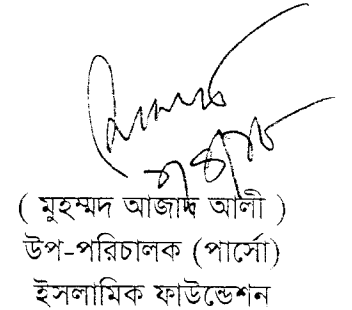 ( মুহম্মদ আজাদ আলী )
উপ-পরিচালক (পার্সো)
ইসলামিক ফাউন্ডেশন